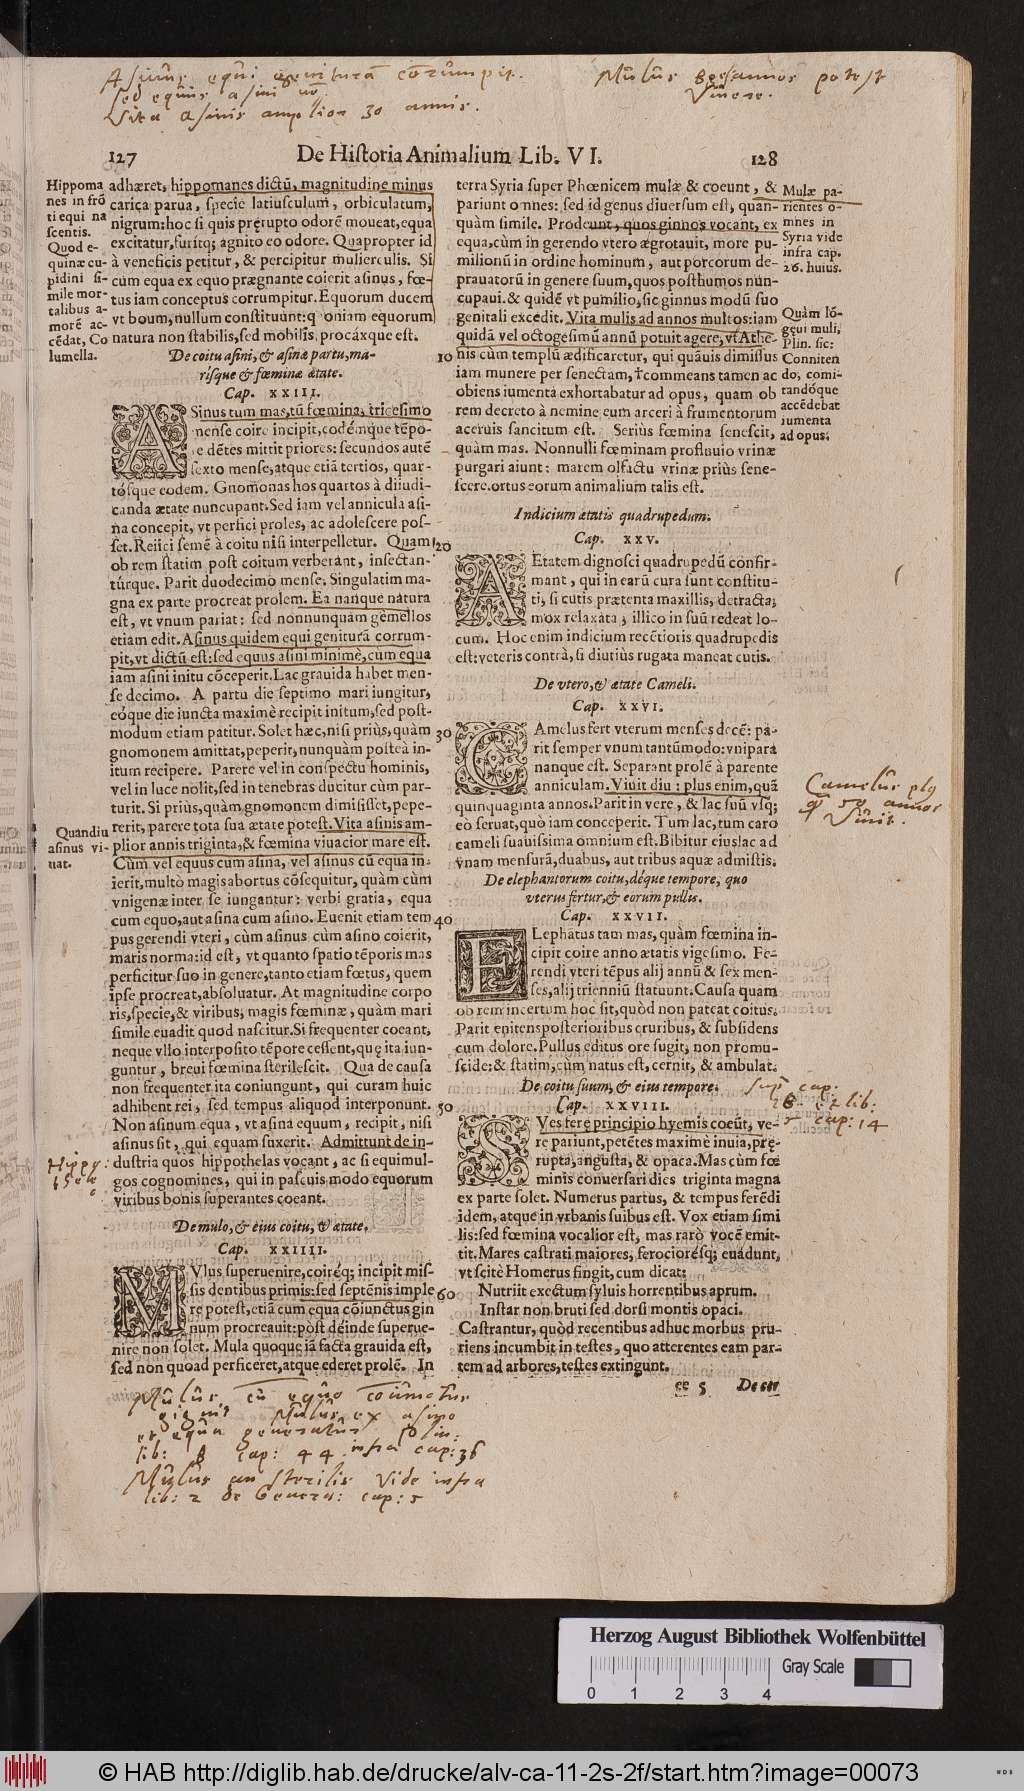 Asinus equi genitura corrumpit.
sed equus asini nō.
Vita asinis amplior 30 annis.
Mulus 80 annos potest
vivere.
127
De Hiſtoria Animalium Lib. VI.
128
Hippoma
nes in frō
ti equi na
ſcentis.
Quod e-
quinæ cu-
pidini ſi-
mile mor-
talibus a-
morē ac-
cēdat, Co
lumella.
adhæret, hippomanes dictū, magnitudine minus
carica parua, ſpecie latiuſculum, orbiculatum,
nigrum: hoc ſi quis prępupto odorē moueat, equa
excitatur, furitq; agnito eo odore. Quapropter id
à veneficis petitur, & percipitur mulierculis. Si
cùm equa ex equo prægnante coierit aſinus, fœ-
tus iam conceptus corrumpitur. Equorum ducem
vt boum, nullum conſtituunt: q oniam equorum
natura non ſtabilis, ſed mobilis, procáxque eſt.
De coitu aſini, & aſinæ partu, ma-
riſque & fœminæ ætate.
Cap. XXIII.
ASinus tum mas, tū fœmina, triceſimo
menſe coire incipit, eodémque tēpo-
re dētes mittit priores: ſecundos autē
ſexto menſe, atque etiā tertios, quar-
tóſque eodem. Gnomonas hos quartos à diiudi-
canda ætate nuncupant. Sed iam vel annicula aſi-
na concepit, vt perfici proles, ac adoleſcere poſ-
ſet. Reiici ſemē à coitu niſi interpelletur. Quam
ob rem ſtatim poſt coitum verberant, inſectan-
túrque. Parit duodecimo menſe. Singulatim ma-
gna ex parte procreat prolem. Ea nanque natura
eſt, vt vnum pariat: ſed nonnunquàm gēmellos
etiam edit. Aſinus quidem equi geniturā corrum-
pit, vt dictū eſt: ſed equus aſini minimè, cùm equa
iam aſini initu cōceperit. Lac grauida habet men-
ſe decimo. A partu die ſeptimo mari iungitur,
eóque die iuncta maximè recipit initum, ſed poſt-
modum etiam patitur. Solet hæc, niſi priùs, quàm
gnomonem amittat, peperit, nunquàm poſteà in-
itum recipere. Parere vel in conſpectu hominis,
vel in luce nolit, ſed in tenebras ducitur cùm par-
turit. Si priùs, quàm gnomonem dimiſiſſet, pepe-
rerit, parere tota ſua ætate poteſt. Vita aſinis am-
plior annis triginta, & fœmina viuacior mare eſt.
Cùm vel equus cum aſina, vel aſinus cū equa in-
ierit, multò magis abortus cōſequitur, quàm cùm
vnigenæ inter ſe iungantur: verbi gratia, equa
cum equo, aut aſina cum aſino. Euenit etiam tem
pus gerendi vteri, cùm aſinus cùm aſino coierit,
maris norma: id eſt, vt quanto ſpatio tēporis mas
perficitur ſuo in genere, tanto etiam fœtus, quem
ipſe procreat, abſoluatur. At magnitudine corpo
ris, ſpecie, & viribus, magis fœminæ, quàm mari
ſimile euadit quod naſcitur. Si frequenter coeant,
neque vllo interpoſito tēpore ceſſent, quę ita iun-
guntur, breui fœmina ſterileſcit. Qua de cauſa
non frequenter ita coniungunt, qui curam huic
adhibent rei, ſed tempus aliquod interponunt.
Non aſinum equa, vt aſina equum, recipit, niſi
aſinus ſit, qui equam ſuxerit. Admittunt de in-
duſtria quos hippothelas vocant, ac ſi equimul-
gos cognomines, qui in paſcuis modo equorum
viribus bonis ſuperantes coeant.
De mulo, & eius coitu, & ætate.
Cap. XXIIII.
MVlus ſuperuenire, coiréq; incipit miſ-
ſis dentibus primis: ſed ſeptēnis imple
re poteſt, etiā cum equa cōiunctus gin
num procreauit: pòſt deinde ſuperue-
nire non ſolet. Mula quoque iā facta grauida eſt,
ſed non quoad perficeret, atque ederet prolē. In
Quandiu
aſinus vi-
uat.
10
20
30
40
50
60
terra Syria ſuper Phœnicem mulæ & coeunt, &
pariunt omnes: ſed id genus diuerſum eſt, quan-
quàm ſimile. Prodeunt, quos ginnos vocant, ex
equa, cùm in gerendo vtero ægrotauit, more pu-
milionū in ordine hominum, aut porcorum de-
prauatorū in genere ſuum, quos poſthumos nún-
cupaui. & quidē vt pumilio, ſic ginnus modū ſuo
genitali excedit. Vita mulis ad annos multos: iam
quidā vel octogeſimū annū potuit agere, vt Athe-
nis cùm templū ædificaretur, qui quāuis dimiſſus
iam munere per ſenectam, †commeans tamen ac
obiens iumenta exhortabatur ad opus, quam ob
rem decreto à nemine eum arceri à frumentorum
aceruis ſancitum eſt. Seriùs fœmina ſeneſcit,
quàm mas. Nonnulli fœminam profluuio vrinæ
purgari aiunt: marem olfactu vrinæ priùs ſene-
ſcere. ortus eorum animalium talis eſt.
Mulæ pa-
rientes o-
mnes in
Syria vide
infra cap.
26. huius.
Quàm lō-
gęui muli,
Plin. ſic:
Conniten
do, comi-
tandóque
accēdebat
iumenta
ad opus.
Indicium ætatis quadrupedum.
Cap. XXV.
AEtatem dignoſci quadrupedū confir-
mant, qui in earū cura ſunt conſtitu-
ti, ſi cutis prætenta maxillis, detracta,
mox relaxata, illico in ſuū redeat lo-
cum. Hoc enim indicium recētioris quadrupedis
eſt: veteris contrà, ſi diutiùs rugata maneat cutis.
De vtero, & ætate Cameli.
Cap. XXVI.
CAmelus fert vterum menſes decē: pa-
rit ſemper vnum tantūmodo: vnipara
nanque eſt. Separant prolē à parente
anniculam. Viuit diu: plus enim, quā
quinquaginta annos. Parit in vere, & lac ſuū vſq;
eò ſeruat, quò iam conceperit. Tum lac, tum caro
cameli ſuauiſſima omnium eſt. Bibitur eius lac ad
vnam menſurā, duabus, aut tribus aquæ admiſtis.
Camelus plq
q̄ 50 annos
vivit.
De elephantorum coitu, déque tempore, quo
vterus fertur, & eorum pullis.
Cap. XXVII.
ELephātus tam mas, quàm fœmina in-
cipit coire anno ætatis vigeſimo. Fe-
rendi vteri tēpus alij annū & ſex men-
ſes, alij trienniū ſtatuunt. Cauſa quam
ob rem incertum hoc ſit, quòd non pateat coitus.
Parit enitens poſterioribus cruribus, & ſubſidens
cum dolore. Pullus editus ore ſugit, non promu-
ſcide: & ſtatim, cùm natus eſt, cernit, & ambulat.
De coitu ſuum, & eius tempore.
Cap. XXVIII.
sup cap.
18 et lib:
5 cap: 14
SVes ferę principio hyemis coeūt, ve-
re pariunt, petētes maximè inuia, prę-
rupta, anguſta, & opaca. Mas cùm fœ
minis conuerſari dies triginta magna
ex parte ſolet. Numerus partus, & tempus ferēdi
idem, atque in vrbanis ſuibus eſt. Vox etiam ſimi
lis: ſed fœmina vocalior eſt, mas rarò vocē emit-
tit. Mares caſtrati maiores, ferociorésq; euadunt,
vt ſcitè Homerus fingit, cum dicat:
Nutriit exectum ſyluis horrentibus aprum.
Inſtar non bruti ſed dorſi montis opaci.
Caſtrantur, quòd recentibus adhuc morbus pru-
riens incumbit in teſtes, quo atterentes eam par-
tem ad arbores, teſtes extingunt.
ee 5 De ſtr
Mulus cū equa coniunctus
gignit Mulus ex asino
et equa generatur Plin:
lib: 8 cap: 44 infra cap: 36
Mulus an sterilis vide infra
lib: 2 de Genera: cap: 5
Herzog August Bibliothek Wolfenbüttel
Gray Scale
0 1 2 3 4
© HAB http://diglib.hab.de/drucke/alv-ca-11-2s-2f/start.htm?image=00073